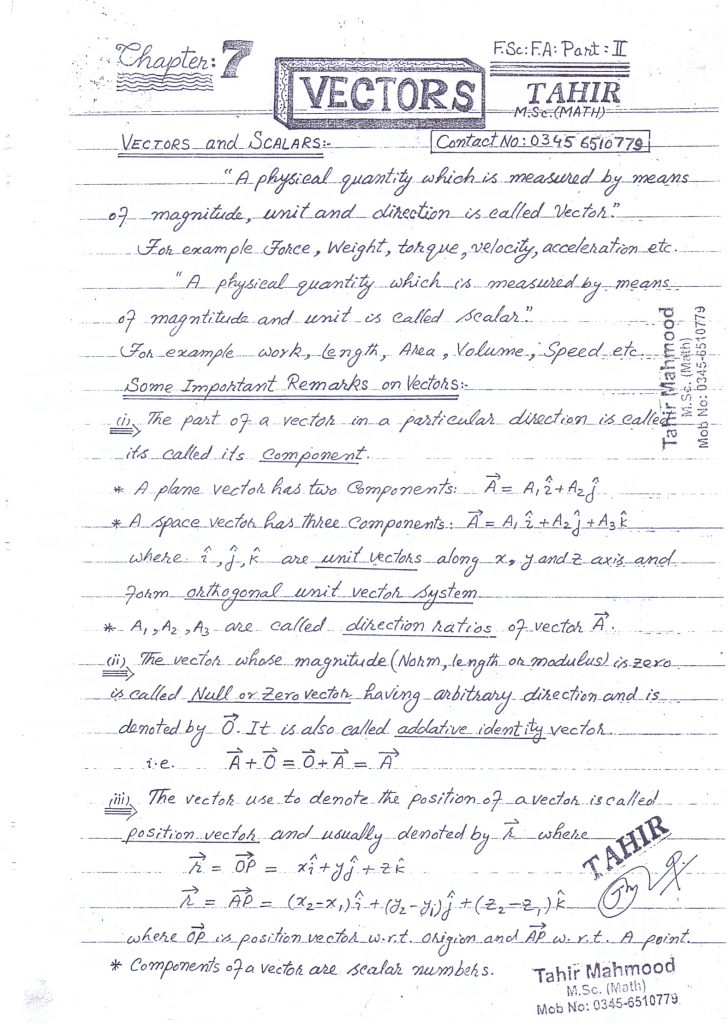 Chapter: 7
F.Sc: F.A: Part: II
VECTORS
TAHIR
M.Sc.(MATH)
VECTORS and SCALARS:-
Contact No: 0345 6510779
"A physical quantity which is measured by means
of magnitude, unit and direction is called Vector."
For example Force, Weight, torque, velocity, acceleration etc.
"A physical quantity which is measured by means
of magntitude and unit is called scalar."
For example work, Length, Area, Volume, Speed etc.
Tahir Mahmood
M.Sc. (Math)
Mob No: 0345-6510779
Some Important Remarks on Vectors:-
(i) The part of a vector in a particular direction is called
its called its component.
* A plane vector has two Components: A⃗ = A₁î+A₂ĵ
* A space vector has three Components: A⃗ = A₁î+A₂ĵ+A₃k̂
where î, ĵ, k̂ are unit vectors along x, y and z axis and
form orthogonal unit vector system.
* A₁, A₂, A₃ are called direction ratios of vector A⃗.
(ii) The vector whose magnitude (Norm, length or modulus) is zero
is called Null or Zero vector having arbitrary direction and is
denoted by O⃗. It is also called addative identity vector.
i.e. A⃗ + O⃗ = O⃗ + A⃗ = A⃗
(iii) The vector use to denote the position of a vector is called
position vector and usually denoted by r⃗ where
r⃗ = OP⃗ = xî+yĵ+zk̂
r⃗ = AP⃗ = (x₂-x₁)î+(y₂-y₁)ĵ+(z₂-z₁)k̂
TAHIR
where OP⃗ is position vector w.r.t. origion and AP⃗ w.r.t. A point.
* Components of a vector are scalar numbers.
Tahir Mahmood
M.Sc. (Math)
Mob No: 0345-6510779